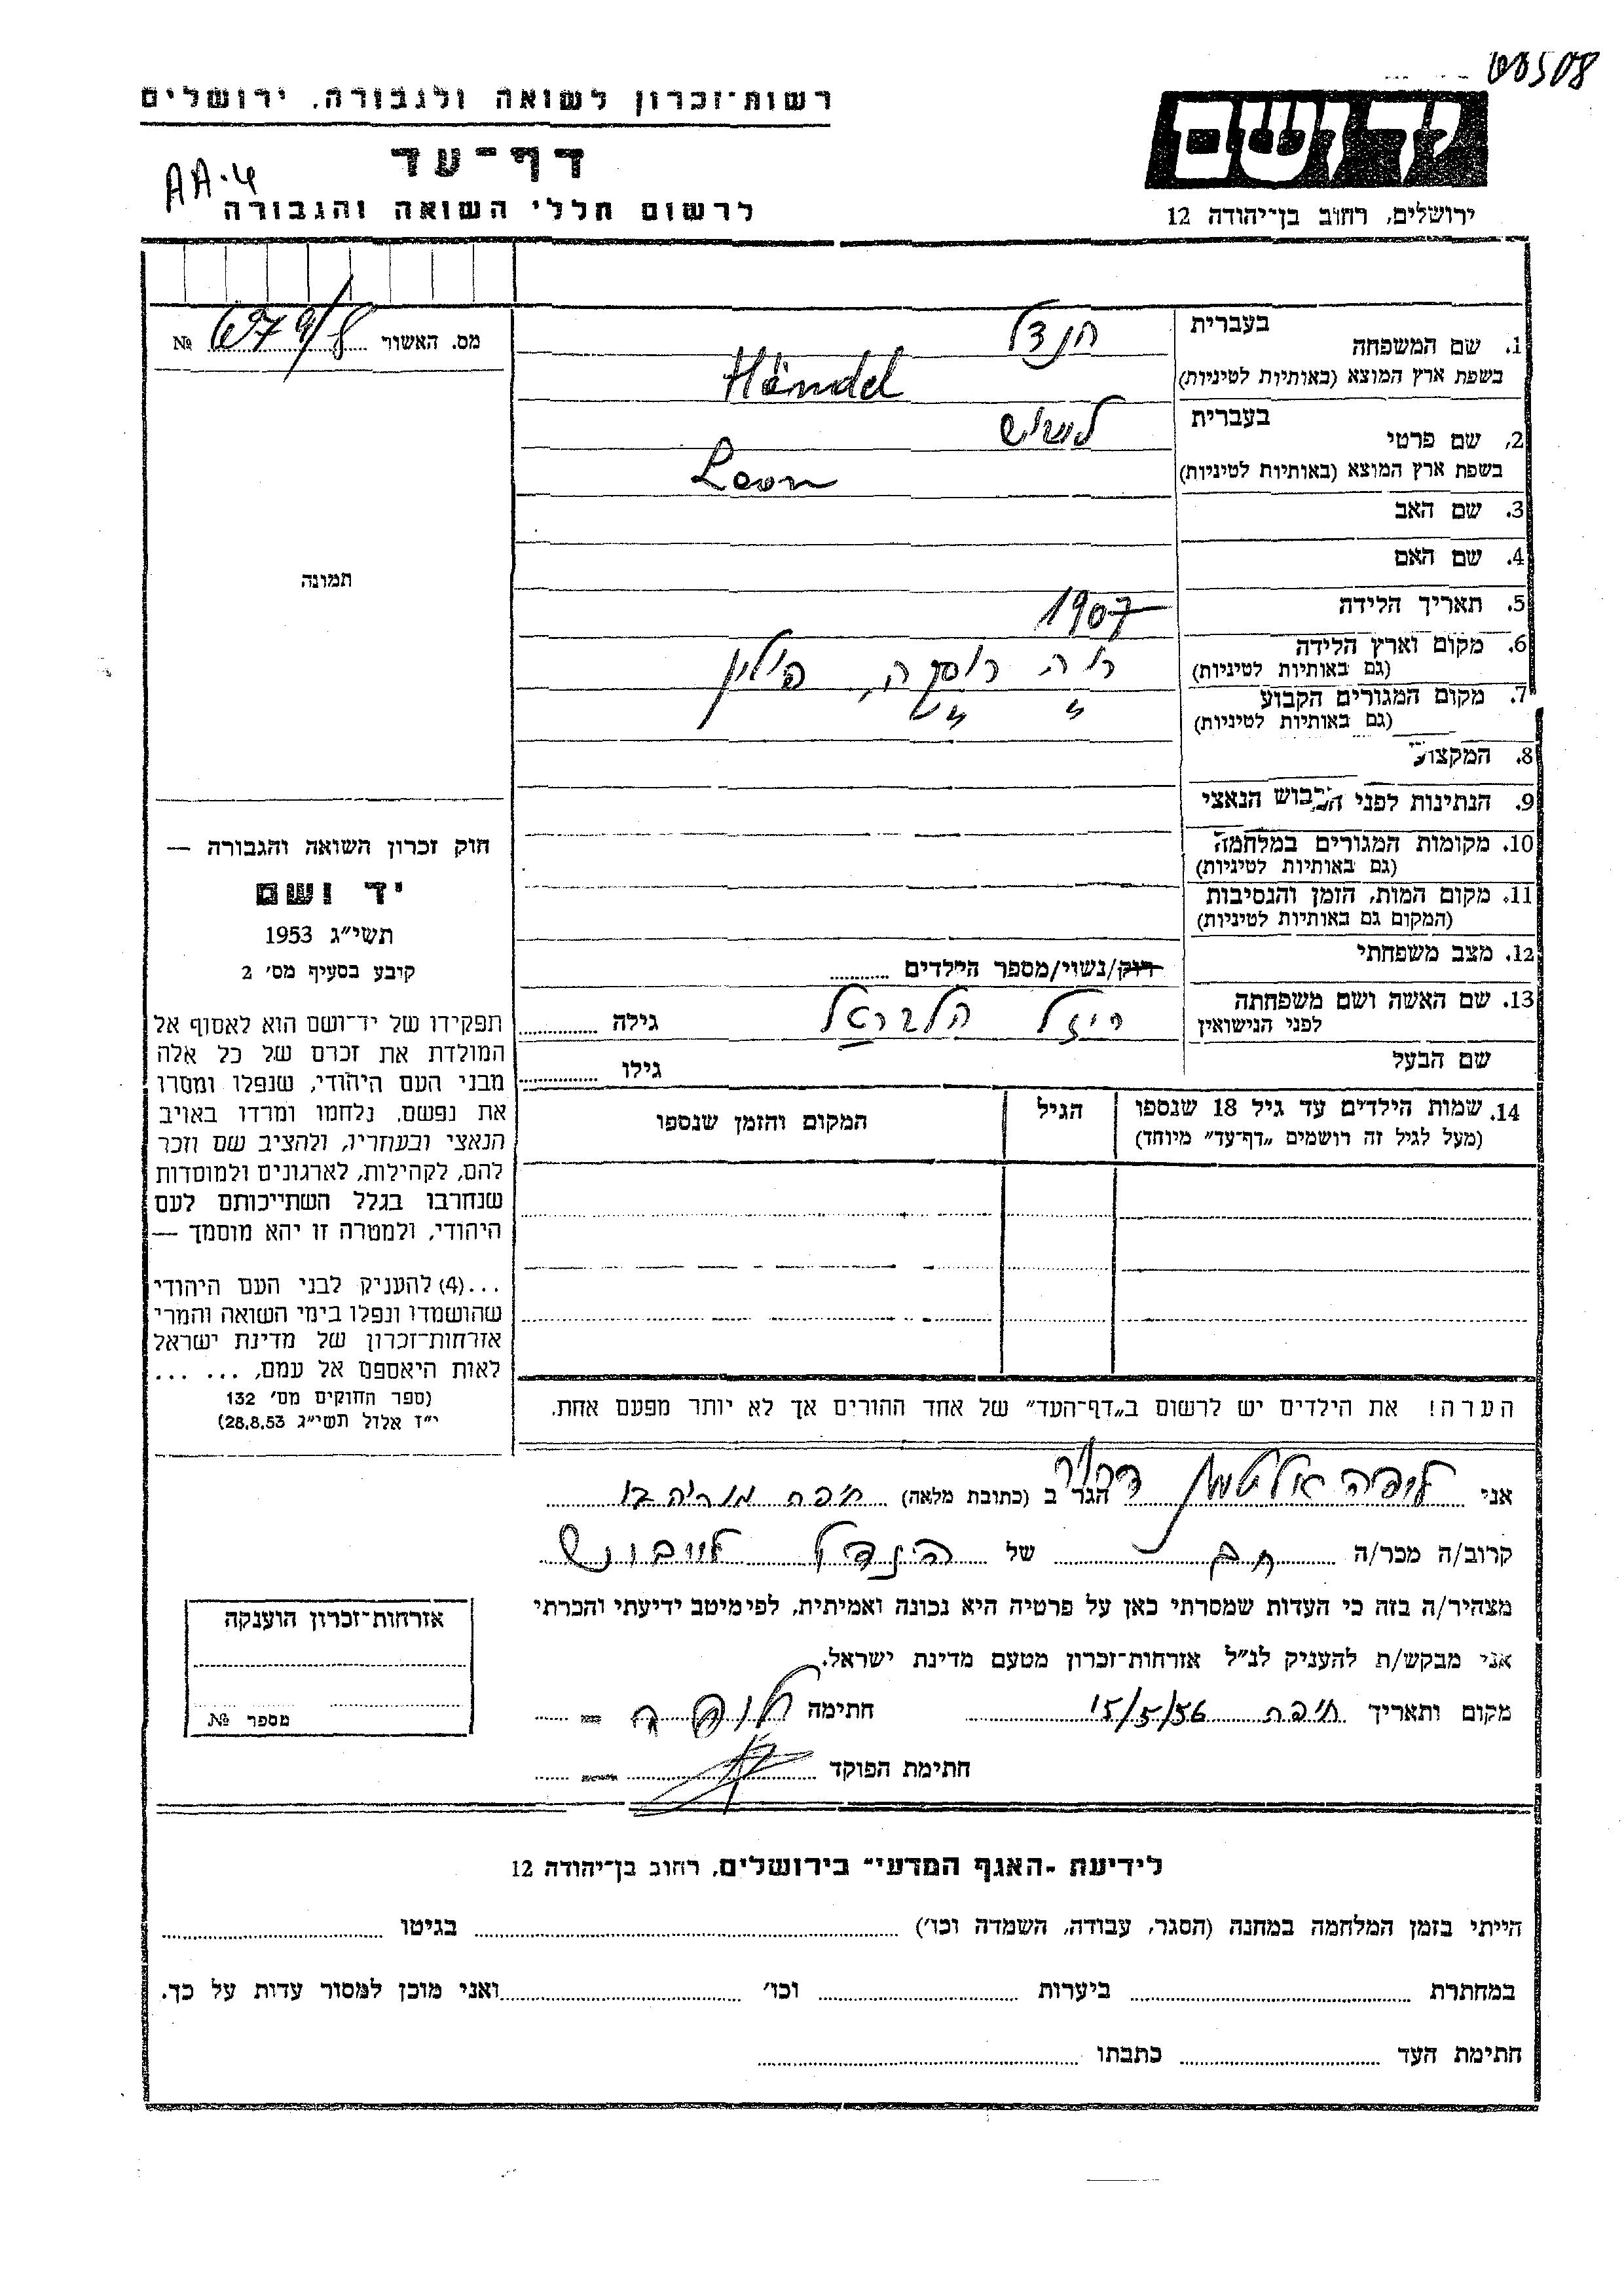 00508
רשות־זכרון לשואה ולגבורה. ירושלים
ידושם
דף־עד
AA.4
לרשום חללי השואה והגבורה
ירושלים, רחוב בן־יהודה 12
מס. האשור № 6979/8
בעברית
הנדל
1. שם המשפחה
בשפת ארץ המוצא (באותיות לטיניות)
Händel
בעברית
2. שם פרטי
בשפת ארץ המוצא (באותיות לטיניות)
Leon
3. שם האב
4. שם האם
תמונה
5. תאריך הלידה
1907
6. מקום וארץ הלידה
(גם באותיות לטיניות)
רוסקה, פולין
7. מקום המגורים הקבוע
(גם באותיות לטיניות)
" "
8. המקצוע
9. הנתינות לפני הכבוש הנאצי
10. מקומות המגורים במלחמה
(גם באותיות לטיניות)
11. מקום המות, הזמן והנסיבות
(המקום גם באותיות לטיניות)
12. מצב משפחתי
רוק/נשוי/מספר הילדים
13. שם האשה ושם משפחתה
לפני הנישואין
רוזל גילה
שם הבעל
גילו
14. שמות הילדים עד גיל 18 שנספו
(מעל לגיל זה רושמים „דף־עד" מיוחד)
הגיל
המקום והזמן שנספו
חוק זכרון השואה והגבורה —
יד ושם
תשי"ג 1953
קובע בסעיף מס׳ 2
תפקידו של יד־ושם הוא לאסוף אל
המולדת את זכרם של כל אלה
מבני העם היהודי, שנפלו ומסרו
את נפשם, נלחמו ומרדו באויב
הנאצי ובעוזריו, ולהציב שם וזכר
להם, לקהילות, לארגונים ולמוסדות
שנחרבו בגלל השתייכותם לעם
היהודי, ולמטרה זו יהא מוסמך —
...(4) להעניק לבני העם היהודי
שהושמדו ונפלו בימי השואה והמרי
אזרחות־זכרון של מדינת ישראל
לאות היאספם אל עמם, ... ...
(ספר החוקים מס׳ 132
י"ז אלול תשי"ג 28.8.53)
הערה! את הילדים יש לרשום ב„דף־העד" של אחד ההורים אך לא יותר מפעם אחת.
אני לופה הגר ב (כתובת מלאה) חיפה מוריה
קרוב/ה מכר/ה של הנדל לייבוש
מצהיר/ה בזה כי העדות שמסרתי כאן על פרטיה היא נכונה ואמיתית, לפי מיטב ידיעתי והכרתי
אני מבקש/ת להעניק לנ"ל אזרחות־זכרון מטעם מדינת ישראל.
מקום ותאריך חיפה 15/5/56 חתימה לופה
חתימת הפוקד
אזרחות־זכרון הוענקה
מספר №
לידיעת „האגף המדעי" בירושלים, רחוב בן־יהודה 12
הייתי בזמן המלחמה במחנה (הסגר, עבודה, השמדה וכו׳) בגיטו
במחתרת ביערות וכו׳ ואני מוכן למסור עדות על כך.
חתימת העד כתבתו